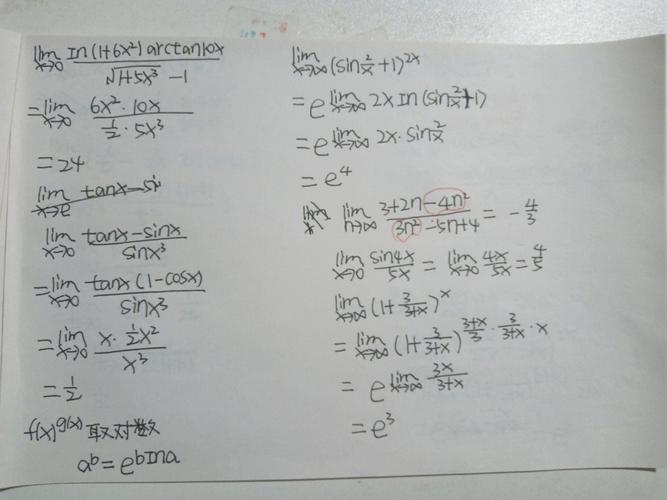 lim x→0 ln(1+6x²)arctan10x / √(1+5x³) -1
= lim x→0 6x²·10x / ½·5x³
= 24
lim x→e tanx-si
lim x→0 tanx-sinx / sinx³
= lim x→0 tanx(1-cosx) / sinx³
= lim x→0 x·½x² / x³
= ½
f(x)^g(x) 取对数
a^b = e^blna
lim x→∞ (sin 2/x +1)^2x
= e^lim x→∞ 2x ln(sin 2/x +1)
= e^lim x→∞ 2x·sin 2/x
= e⁴
lim x lim n→∞ 3+2n-4n² / 3n²-5n+4 = -4/3
lim x→0 sin4x / 5x = lim x→0 4x / 5x = 4/5
lim x→∞ (1+ 3/3+x)^x
= lim x→∞ (1+ 3/3+x)^3+x/3 · 3/3+x · x
= e^lim x→∞ 3x/3+x
= e³